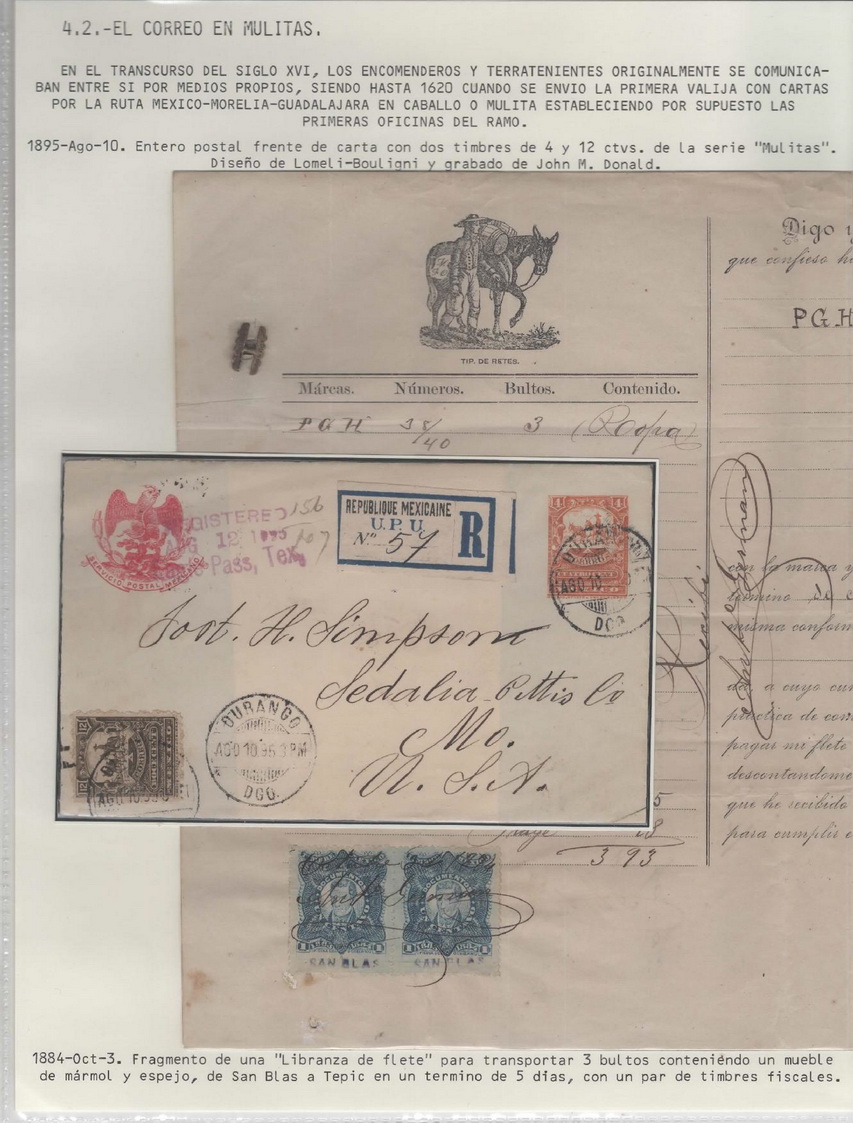 4.2.-EL CORREO EN MULITAS.
EN EL TRANSCURSO DEL SIGLO XVI, LOS ENCOMENDEROS Y TERRATENIENTES ORIGINALMENTE SE COMUNICA-
BAN ENTRE SI POR MEDIOS PROPIOS, SIENDO HASTA 1620 CUANDO SE ENVIO LA PRIMERA VALIJA CON CARTAS
POR LA RUTA MEXICO-MORELIA-GUADALAJARA EN CABALLO O MULITA ESTABLECIENDO POR SUPUESTO LAS
PRIMERAS OFICINAS DEL RAMO.
1895-Ago-10. Entero postal frente de carta con dos timbres de 4 y 12 ctvs. de la serie "Mulitas".
Diseño de Lomeli-Bouligni y grabado de John M. Donald.
TIP. DE RETES.
Márcas. Números. Bultos. Contenido.
PGH 38/40 3 (Ropa)
Digo y
que confieso h
PGH
REGISTERED 156
12 1895 107
Pass, Tex.
SERVICIO POSTAL MEXICANO
REPUBLIQUE MEXICAINE
U.P.U.
Nº 57
R
4 4
DURANGO
AGO 10
DGO.
Post. H. Simpson
Sedalia Pettis Co
Mo.
U.S.A.
12 12
AGO 10
DURANGO
AGO 10 95 3 PM
DGO.
Recibí
con la marca y
término de
misma conform
da, a cuyo cum
práctica de com
pagar mi flete
descontándome
que he recibido
para cumplir
5
18
3 93
DOCUMENTOS DOCUMENTOS
SAN BLAS SAN BLAS
1884-Oct-3. Fragmento de una "Libranza de flete" para transportar 3 bultos conteniéndo un mueble
de mármol y espejo, de San Blas a Tepic en un termino de 5 dias, con un par de timbres fiscales.